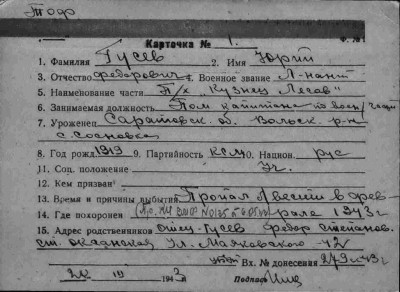 Тоф
Карточка № 1.
Ф. №
1. Фамилия Гусев 2. Имя Юрий
3. Отчество Федорович 4. Военное звание Л-нант
5. Наименование части П/х "Кузнец Лесов"
6. Занимаемая должность Пом. капитана по воен/части
7. Уроженец Саратовск. об. Вольск. р-н
с. Сосновка
8. Год рожд. 1919 9. Партийность ВСЛЮ 10. Национ. рус
11. Соц. положение Уч.
12. Кем призван
13. Время и причины выбытия Пропал б/вести в фев-
14. Где похоронен рале 1943 г
15. Адрес родственников Отец-Гусев Федор Степанов.
ул. Маяковского 42
Вх. № донесения 279-43 г
194 г. Подпись